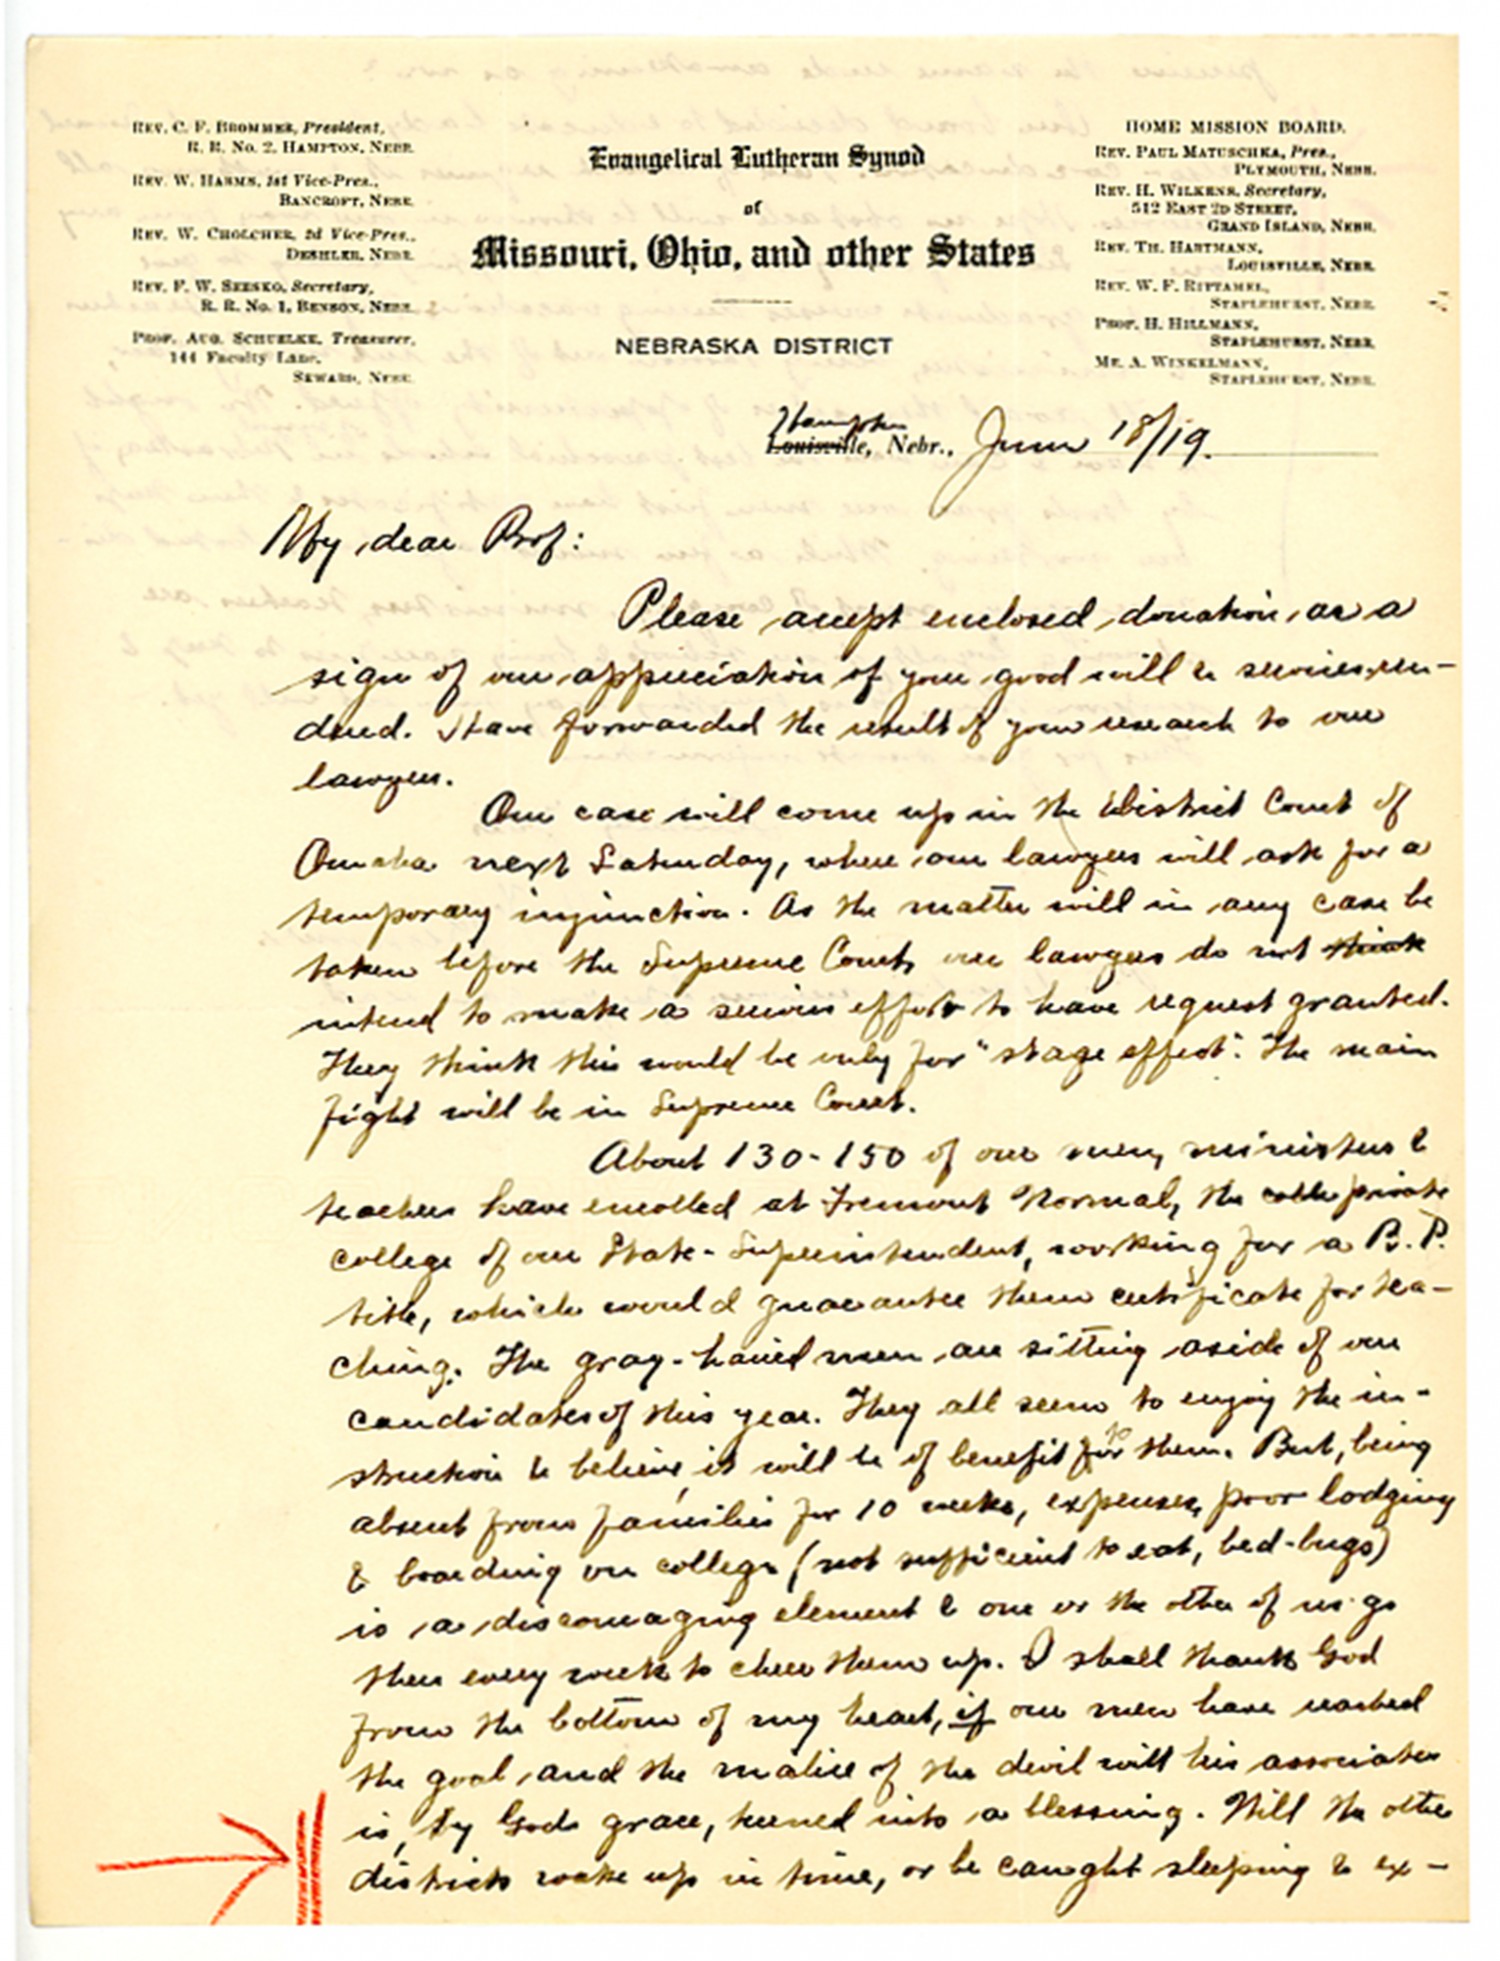 REV. C. F. BROMMER, President,
R. R. No. 2, HAMPTON, NEBR.
REV. W. HARMS, 1st Vice-Pres.,
BANCROFT, NEBR.
REV. W. CHOLCHER, 2d Vice-Pres.,
DESHLER, NEBR.
REV. F. W. SEESKO, Secretary,
R. R. No. 1, BENSON, NEBR.
PROF. AUG. SCHUELKE, Treasurer,
144 Faculty Lane,
SEWARD, NEBR.
Evangelical Lutheran Synod
of
Missouri, Ohio, and other States
NEBRASKA DISTRICT
HOME MISSION BOARD.
REV. PAUL MATUSCHKA, Pres.,
PLYMOUTH, NEBR.
REV. H. WILKENS, Secretary,
512 EAST 2D STREET,
GRAND ISLAND, NEBR.
REV. TH. HARTMANN,
LOUISVILLE, NEBR.
REV. W. F. RITTAMEL,
STAPLEHURST, NEBR.
PROF. H. HILLMANN,
STAPLEHURST, NEBR.
MR. A. WINKELMANN,
STAPLEHURST, NEBR.
Hampton
Louisville, Nebr., June 18/19.
My dear Prof:
Please accept enclosed donation as a
sign of our appreciation of your good will & services ren-
dered. Have forwarded the result of your research to our
lawyers.
Our case will come up in the District Court of
Omaha next Saturday, where our lawyers will ask for a
temporary injunction. As the matter will in any case be
taken before the Supreme Court, our lawyers do not think
intend to make a serious effort to have request granted.
They think this would be only for "stage effect". The main
fight will be in Supreme Court.
About 130-150 of our men, ministers &
teachers have enrolled at Fremont Normal, the private
college of our State-Superintendent, working for a B. P.
title, which would guarantee them certificate for tea-
ching. The gray-haired men are sitting aside of our
candidates of this year. They all seem to enjoy the in-
struction & believe, it will be of benefit for to them. But, being
absent from families for 10 weeks, expenses, poor lodging
& boarding on college (not sufficient to eat, bed-bugs)
is a discouraging element & one or the other of us go
then every week to cheer them up. I shall thank God
from the bottom of my heart, if our men have reached
the goal and the malice of the devil with his associates
is, by Gods grace, turned into a blessing. Will the other
districts wake up in time, or be caught sleeping & ex-